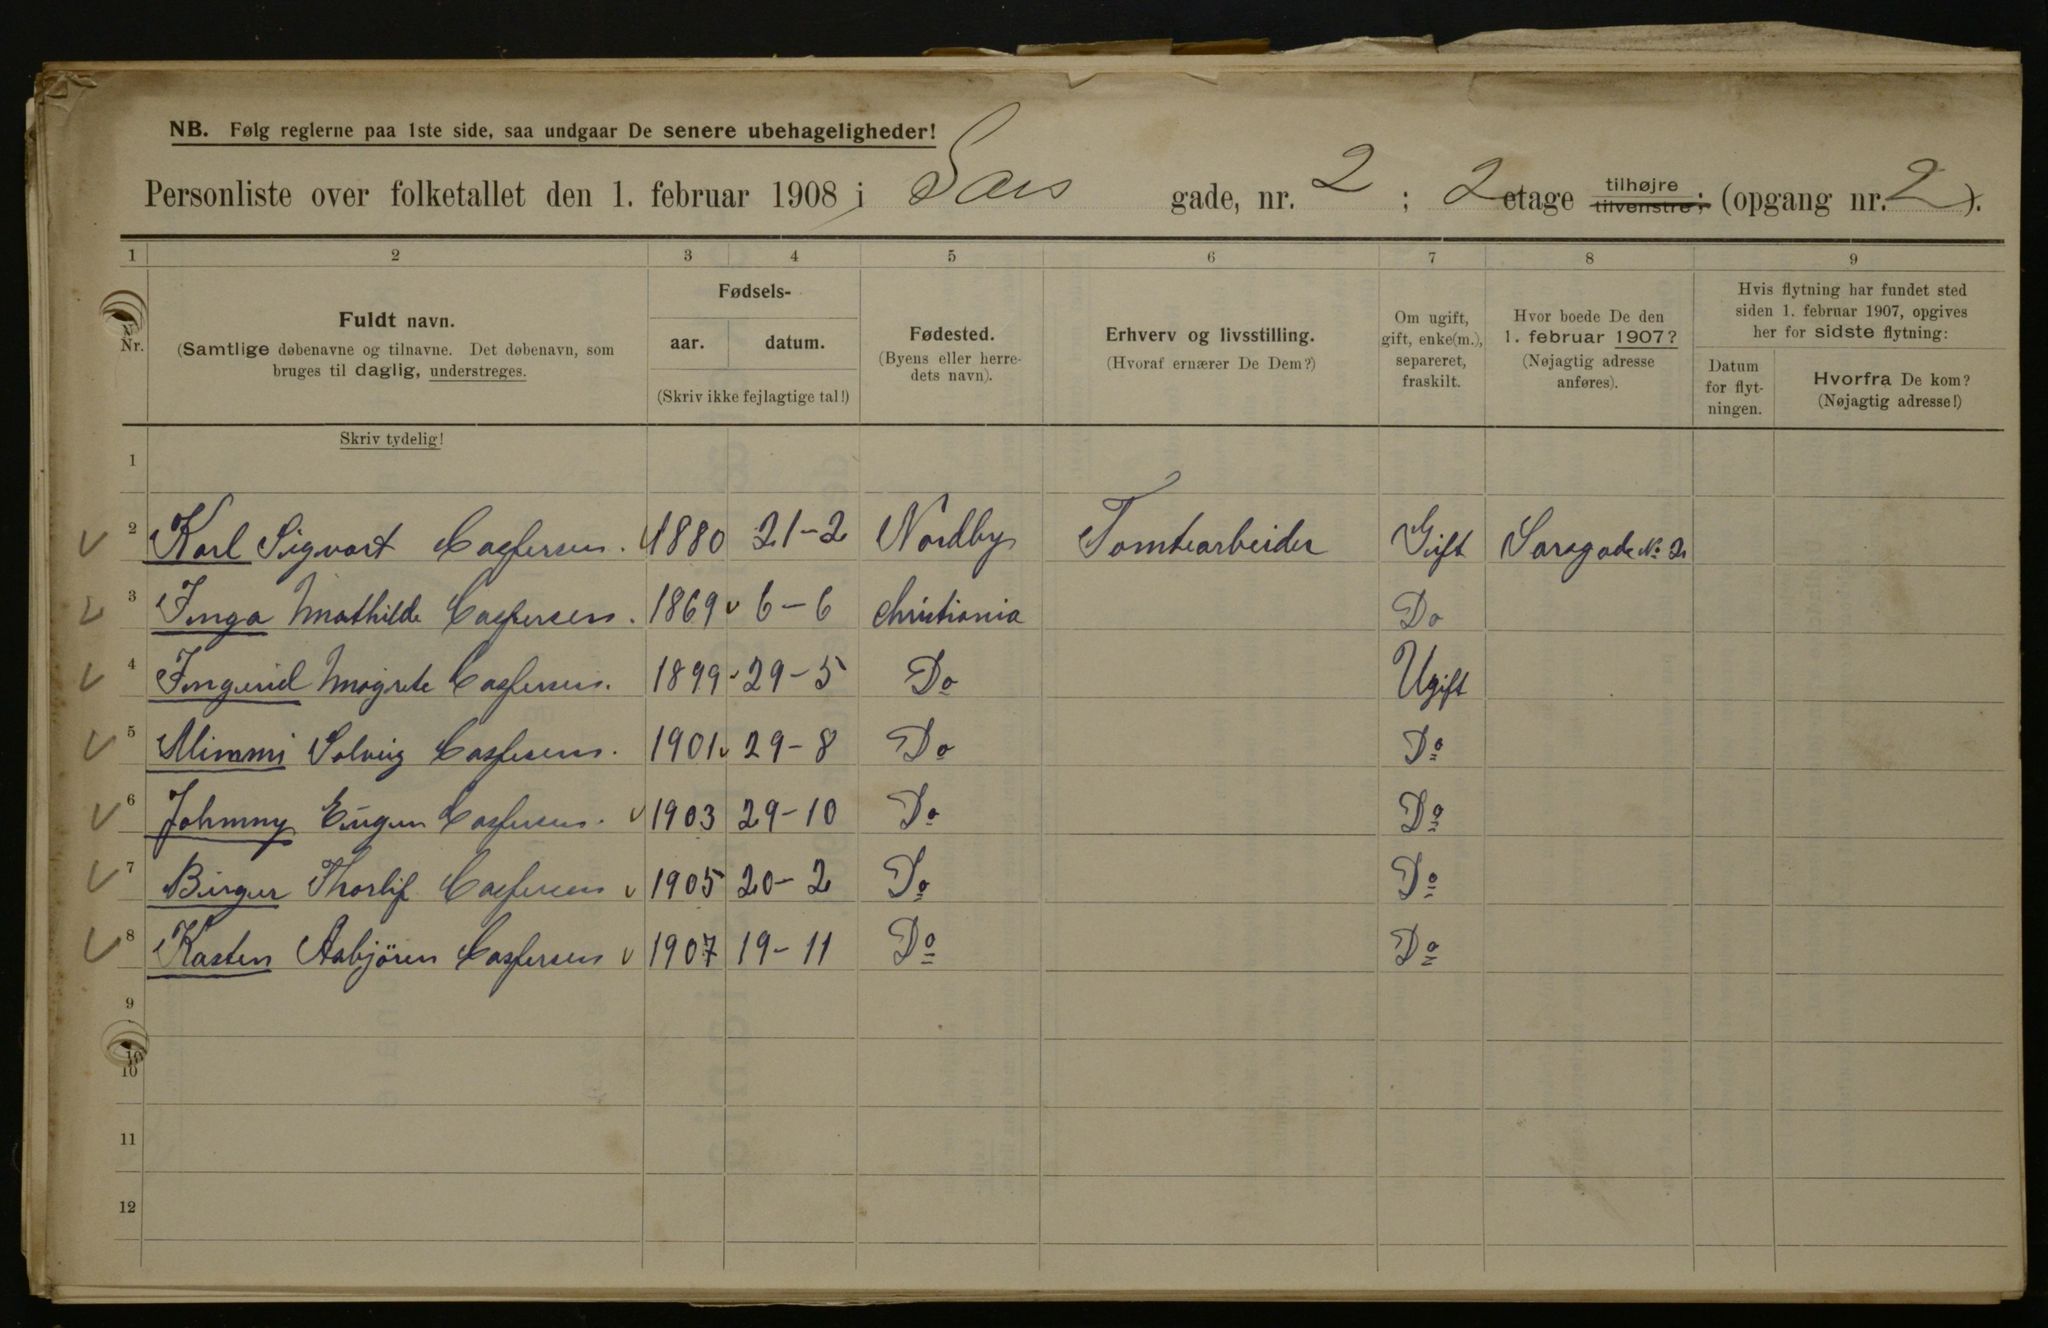 NB. Følg reglerne paa 1ste side, saa undgaar De senere ubehageligheder!
Personliste over folketallet den 1. februar 1908 i Sars gade, nr. 2 ; 2 etage tilhøjre tilvenstre; (opgang nr. 2).
1 2 3 4 5 6 7 8 9
Nr.
Fuldt navn.
(Samtlige døbenavne og tilnavne. Det døbenavn, som
bruges til daglig, understreges.
Skriv tydelig!
Fødsels-
aar. datum.
(Skriv ikke fejlagtige tal!)
Fødested.
(Byens eller herre-
dets navn).
Erhverv og livsstilling.
(Hvoraf ernærer De Dem?)
Om ugift,
gift, enke(m.),
separeret,
fraskilt.
Hvor boede De den
1. februar 1907?
(Nøjagtig adresse
anføres).
Hvis flytning har fundet sted
siden 1. februar 1907, opgives
her for sidste flytning:
Datum
for flyt-
ningen.
Hvorfra De kom?
(Nøjagtig adresse!)
1
2 Karl Sigvart Casfersen. 1880 21-2 Nordby Tomtearbeider Gift Sarsgade No 2
3 Inga Mathilde Caspersen. 1869 6-6 Christiania Do
4 Ingerid Magrete Casfersen. 1899 29-5 Do Ugift
5 Mimmi Solveig Casfersen. 1901 29-8 Do Do
6 Johnny Eugen Casfersen. 1903 29-10 Do Do
7 Birger Thorlif Casfersen 1905 20-2 Do Do
8 Kasten Asbjören Casfersen 1907 19-11 Do Do
9
10
10
11
12